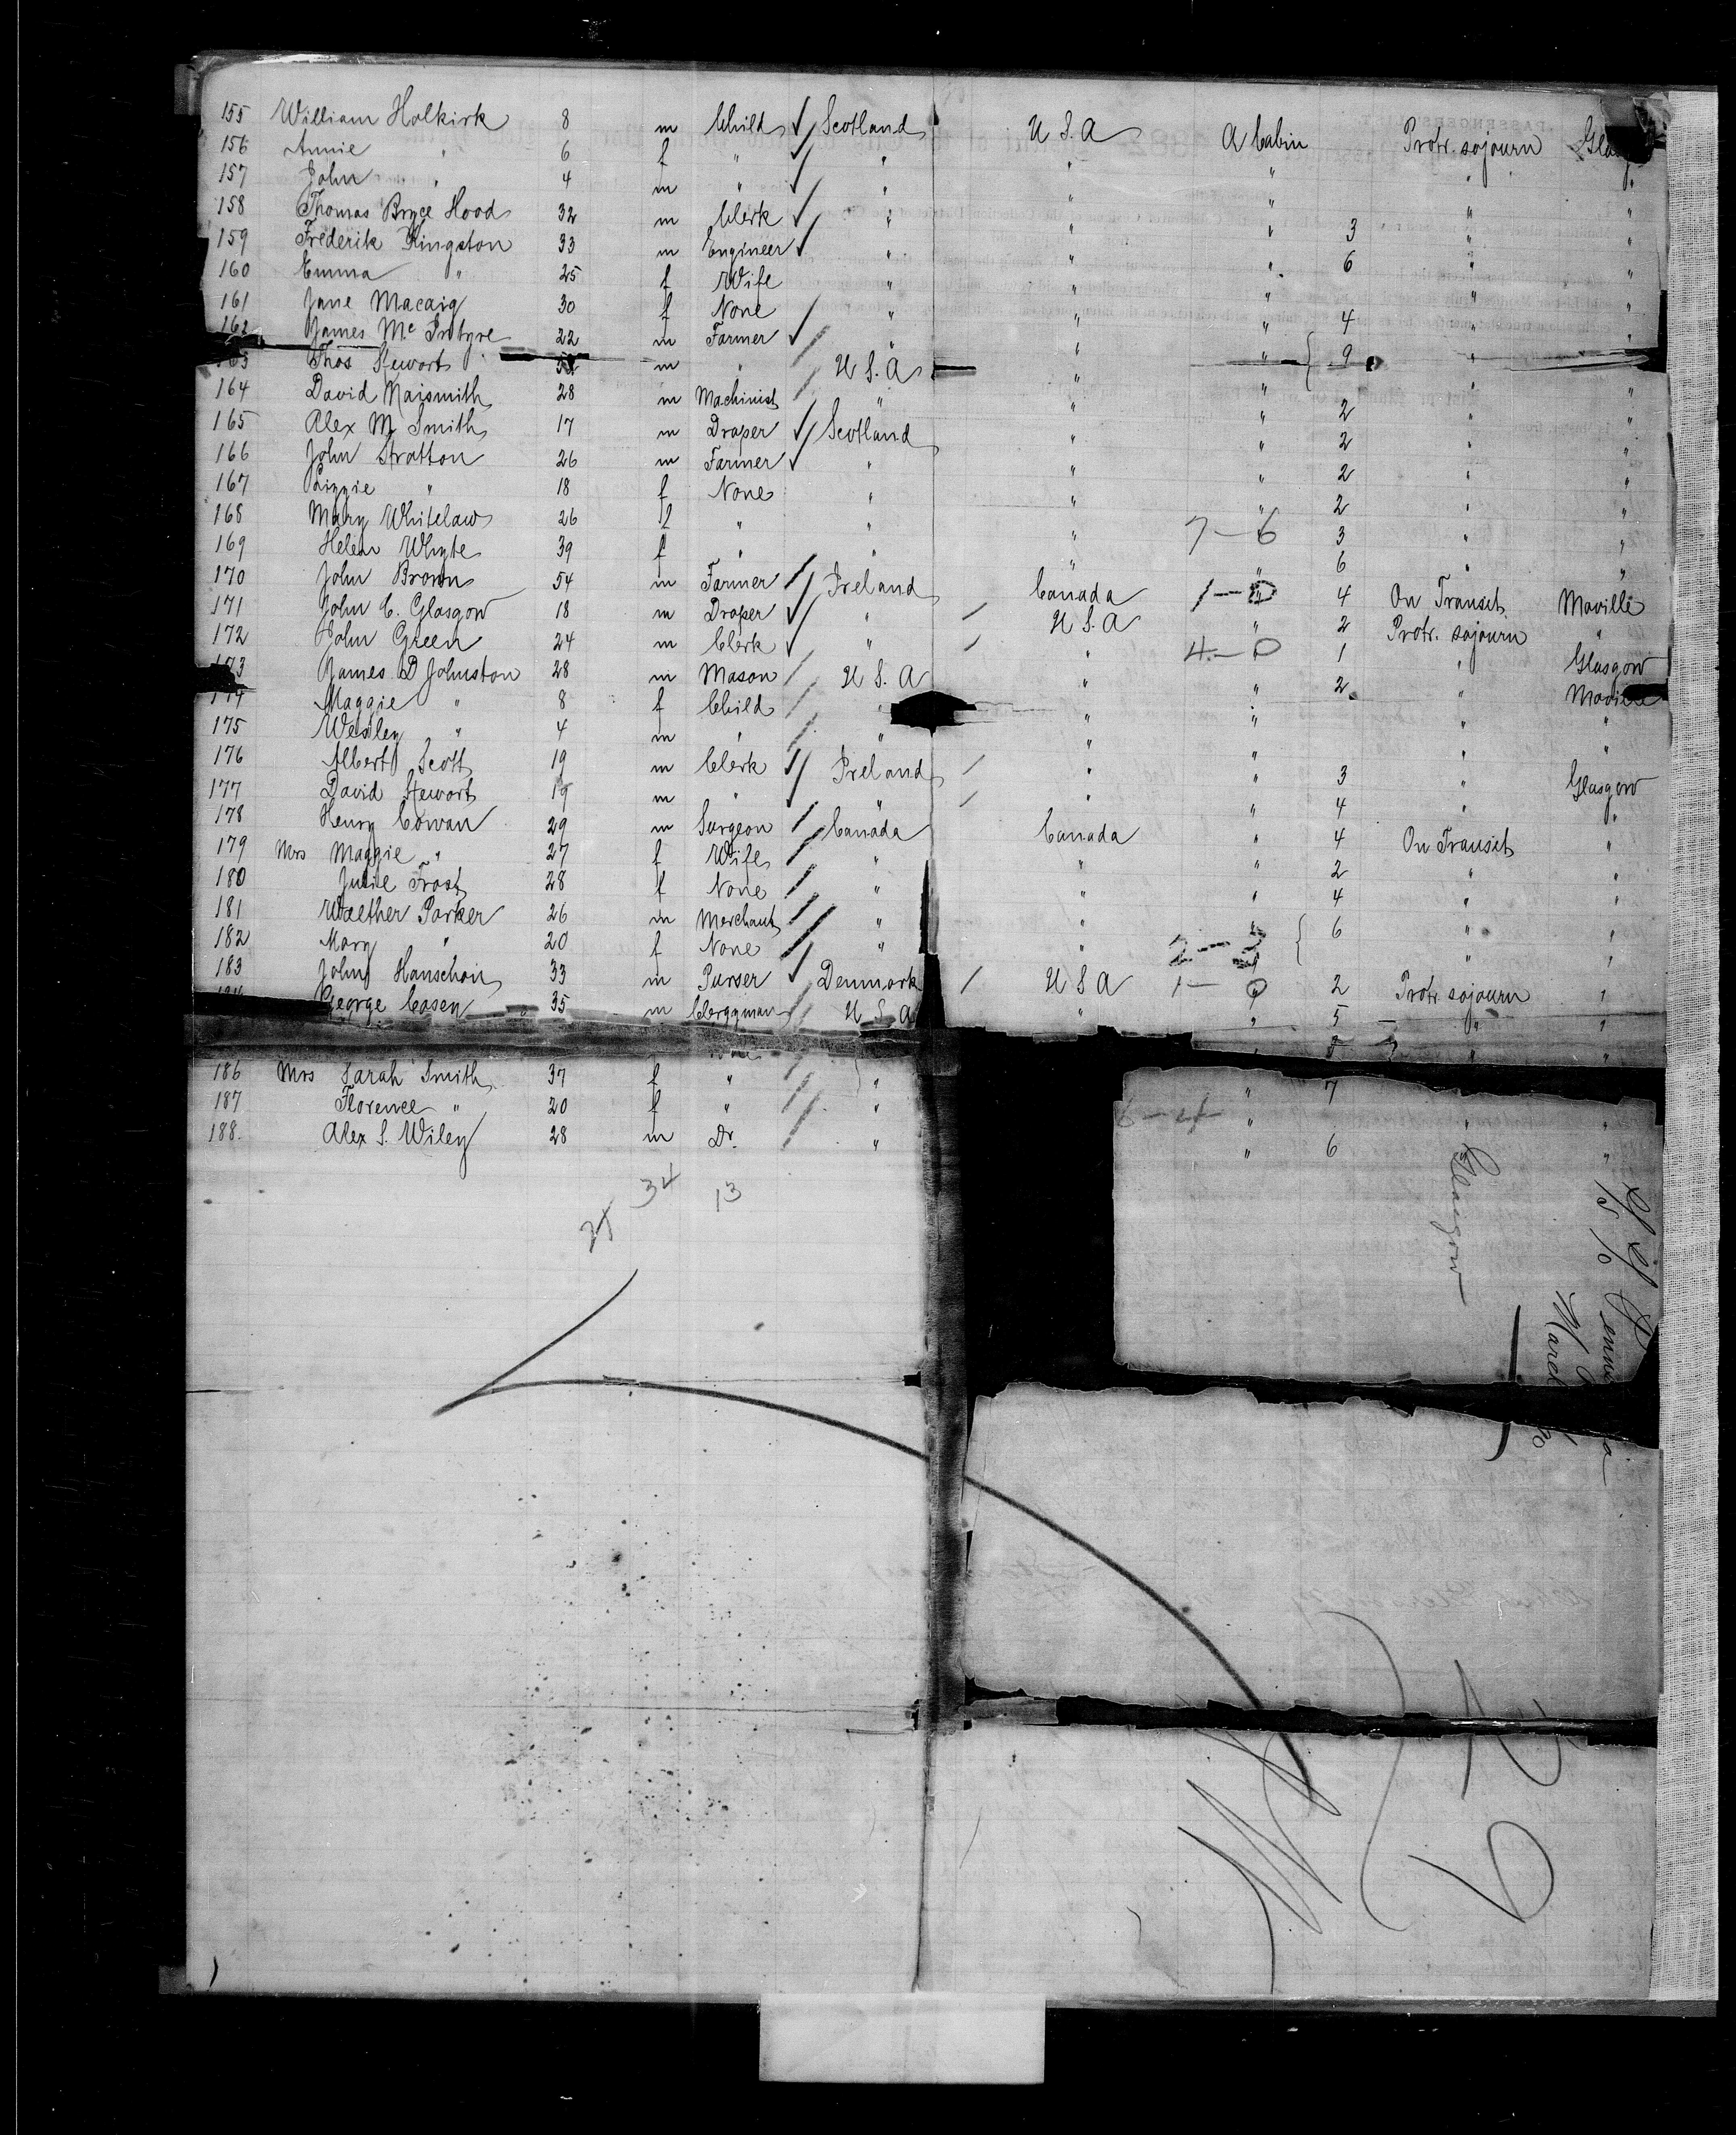 155 William Holkirk 8 m Child Scotland U S. A A Cabin Protr. sojourn
156 Annie " 6 f " " " " " "
157 John " 4 m " " " " " "
158 Thomas Bryce Hood 32 m Clerk " " " 3 " "
159 Frederik Kingston 33 m Engineer " " " 6 " "
160 Emma " 25 f Wife " " " " "
161 Jane Macaig 30 f None " " " 4 " "
162 James Mc Intyre 22 m Farmer " " " 9 " "
Thos Stewart m " U S. A " " " "
164 David Naismith 28 m Machinist " " " 2 " "
165 Alex M Smith 17 m Draper Scotland " " 2 " "
166 John Stratton 26 m Farmer " " " 2 " "
167 Lizzie " 18 f None " " " 2 " "
168 Mary Whitelaw 26 f " " " 7-6 3 " "
169 Helen Whyte 39 f " " " " 6 " "
170 John Brown 54 m Farmer Ireland Canada 1-0 " 4 On Transit Moville
171 John C. Glasgow 18 m Draper " U S. A " 2 Protr. sojourn "
172 John Green 24 m Clerk " " 4-0 " 1 " Glasgow
173 James D Johnston 28 m Mason U S. A " " 2 " Moville
174 Maggie " 8 f Child " " " " "
175 Wesley " 4 m " " " " " "
176 Albert Scott 19 m Clerk Ireland " " 3 " Glasgow
177 David Stewart 19 m " " " " 4 " "
178 Henry Cowan 29 m Surgeon Canada Canada " 4 On Transit "
179 Mrs Maggie " 27 f Wife " " " 2 " "
180 Julie Frost 28 f None " " " 4 " "
181 Walther Parker 26 m Merchant " " " 6 " "
182 Mary " 20 f None " " 2-3 " " "
183 John Hanschon 33 m Purser Denmark U S A 1-0 " 2 Protr. sojourn "
George Casen 35 m Clergyman U S. A " " 5 " "
186 Mrs Sarah Smith 37 f " " " 7
187 Florence " 20 f " " " " "
188. Alex S. Wiley 28 m Dr. " " 6 " "
6-4
34 13
Glasgow
S/S